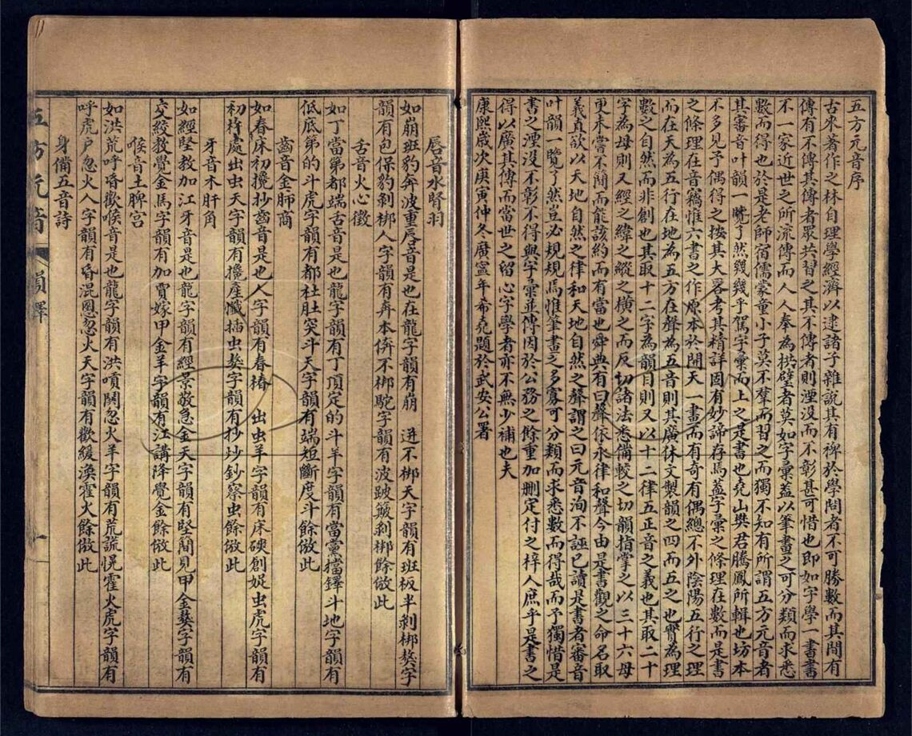 五方元音序
古來著作之林自理學經濟以逮諸子雜說其有裨於學問者不可勝數而其間有
傳有不傳其傳者眾共習之其不傳者則湮沒而不彰甚可惜也即如字學一書書
不一家近世之所流傳而人人奉為拱璧者莫如字彙蓋以筆畫之可分類而求悉
數而得也於是老師宿儒蒙童小子莫不羣而習之而獨不知有所謂五方元音者
其審音叶韻一覽了然幾幾乎駕字彙而上之是書也堯山樊君騰鳳所輯也坊本
不多見予偶得之按其大畧考其精詳固有妙諦存焉蓋字彙之條理在數而是書
之條理在音竊惟六書之作原本於開天一畫而有奇有偶總不外陰陽五行之理
而在天為五行在地為五方在聲為五音則其廣休文製韻之四而五之也實為理
數之自然而非創也其取十二字為韻目則又以十二律五正音之義也其取二十
字為母則又經之緯之縱之橫之而反切諸法悉備較之切韻指掌之以三十六母
更未嘗不簡而能該約而有當也舜典有曰聲依永律和聲今由是書觀之命名取
義真欲以天地自然之律和天地自然之聲謂之曰元音洵不誣已讀是書者審音
叶韻一覽了然豈必規規焉惟筆畫之多寡可分類而求悉數而得哉而予獨惜是
書之湮沒不彰不得與字彙並傳因於公務之餘重加刪定付之梓人庶乎是書之
得以廣其傳而當世之留心字學者亦不無少補也夫
康熙歲次庚寅仲冬廣寧年希堯題於武安公署
脣音水腎羽
如崩班豹奔波重唇音是也在龍字韻有崩 迸不梆天字韻有班板半剝梆獒字
韻有包保豹剝梆人字韻有奔本倴不梆駝字韻有波跛簸剝梆餘倣此
舌音火心徵
如丁當第都端舌音是也龍字韻有丁頂定的斗羊字韻有當黨擋鐸斗地字韻有
低底第的斗虎字韻有都杜肚突斗天字韻有端短斷度斗餘倣此
齒音金肺商
如春床初攙抄齒音是也人字韻有春椿 出虫羊字韻有床磢創娖虫虎字韻有
初持處出虫天字韻有攙產懺插虫獒字韻有抄炒鈔察虫餘倣此
牙音木肝角
如經堅教加江牙音是也龍字韻有經景敬急金天字韻有堅簡見甲金獒字韻有
交絞教覺金馬字韻有加賈嫁甲金羊字韻有江講洚覺金餘倣此
喉音土脾宮
如洪荒呼昏歡喉音是也龍字韻有洪嗊鬨忽火羊字韻有荒謊恍霍火虎字韻有
呼虎戶忽火人字韻有昏混慁忽火天字韻有歡緩渙霍火餘倣此
身備五音詩
五方元音
韻釋